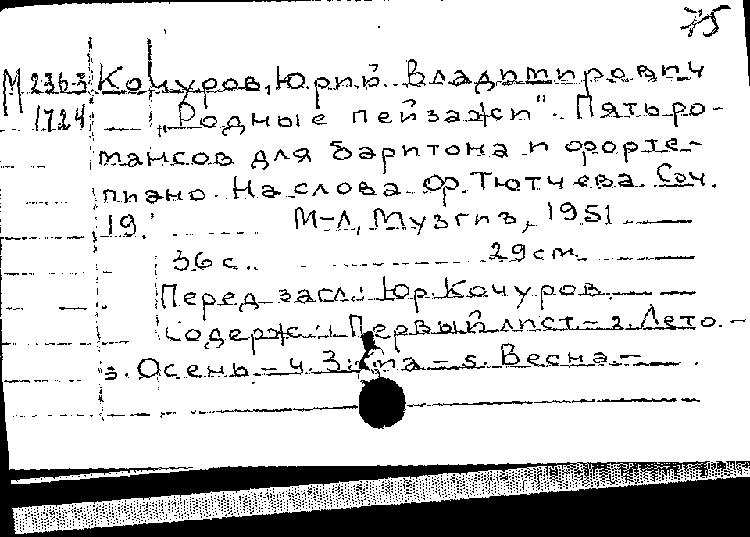 75
М 236-3 Кочуров, Юрий Владимирович
1724 „Родные пейзажи". Пять ро-
мансов для баритона и форте-
пиано. На слова Ф. Тютчева. Соч.
19. М-Л, Музгиз, 1951
36 с. 29 см.
Перед загл.: Юр. Кочуров.
Содерж.: Первый лист – 2. Лето. –
3. Осень – 4. Зима – 5. Весна. –